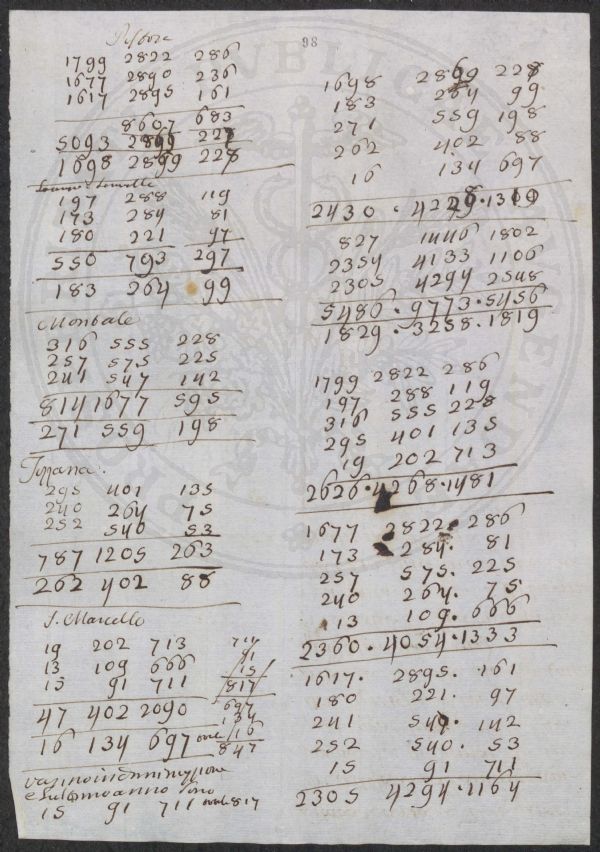 98
1799 2822 286
1677 2890 236
1617 2895 161
8607 683
5093 2869 227
1698 2869 228
197 288 119
173 284 81
180 221 97
550 793 297
183 264 99
Monsale
316 555 228
257 575 225
241 547 142
814 1677 595
271 559 198
Tizzana.
295 401 135
240 264 75
252 540 53
787 1205 263
262 402 88
S. Marcello
19 202 713
13 109 666
15 91 711
47 402 2090
16 134 697
714
91
15
817
697
134
16
847
15 91 711 817
1698 2869 228
183 264 99
271 559 198
262 402 88
16 134 697
2430 . 4229 . 1310
827 1446 1802
2354 4133 1106
2305 4294 2548
5486 . 9773 . 5456
1829 . 3258 . 1819
1799 2822 286
197 288 119
316 555 228
295 401 135
19 202 713
2626 . 4268 . 1481
1677 2822 . 286
173 284 . 81
257 575 . 225
240 264 . 75
13 109 . 666
2360 . 4054 . 1333
1617 . 2895 . 161
180 221 . 97
241 547 . 142
252 540 . 53
15 91 711
2305 4294 . 1164